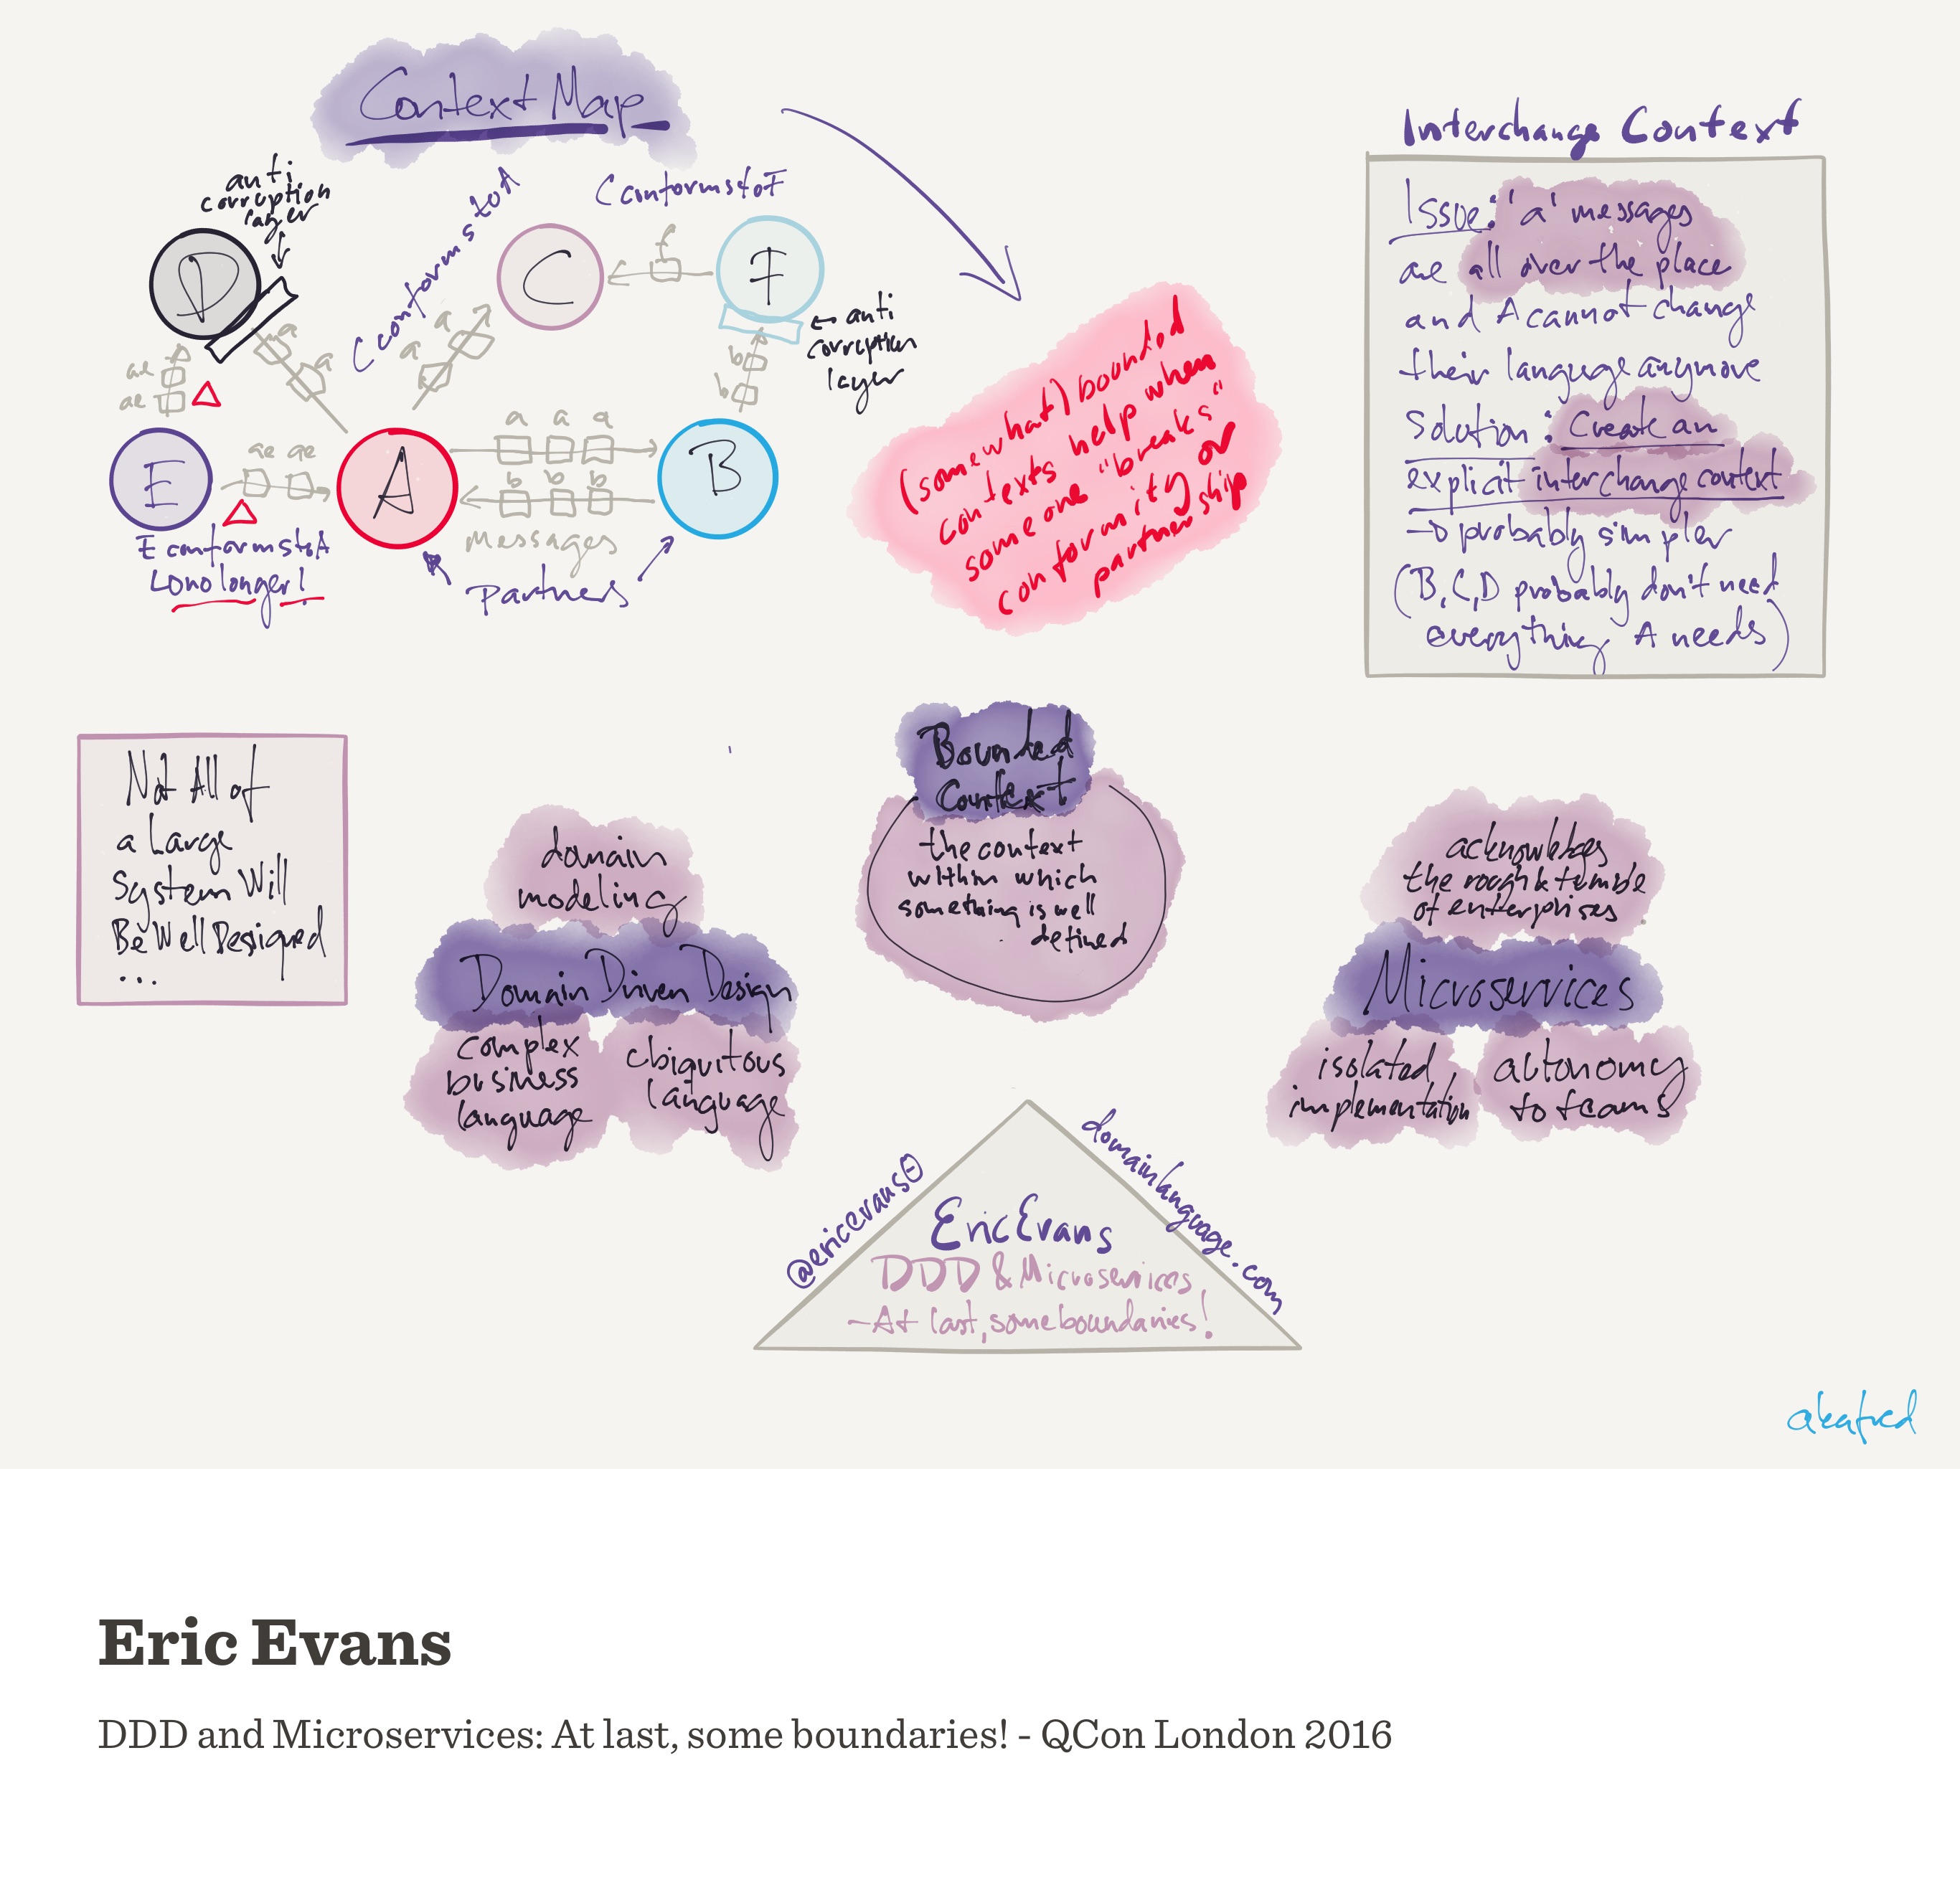 Context Map
anti
corruption
layer
C conforms to A
C conforms to F
D
C
F
f
a
a
a
a
← anti
corruption
layer
ae
ae
b
b
E
ae ae
A
a a a
b b b
messages
B
E conforms to A
no longer!
Partners
(somewhat) bounded
contexts help when
someone "breaks"
conformity or
partnership
Interchange Context
Issue: 'a' messages
are all over the place
and A cannot change
their language anymore
Solution: Create an
explicit interchange context
→ probably simpler
(B, C, D probably don't need
everything A needs)
Not All of
a Large
System Will
Be Well Designed
...
domain
modeling
Domain Driven Design
complex
business
language
ubiquitous
language
Bounded
Context
the context
within which
something is well
defined
acknowledges
the rough & tumble
of enterprises
Microservices
isolated
implementation
autonomy
to teams
@ericevans0
domainlanguage.com
Eric Evans
DDD & Microservices
- At last, some boundaries!
akafred
Eric Evans
DDD and Microservices: At last, some boundaries! - QCon London 2016